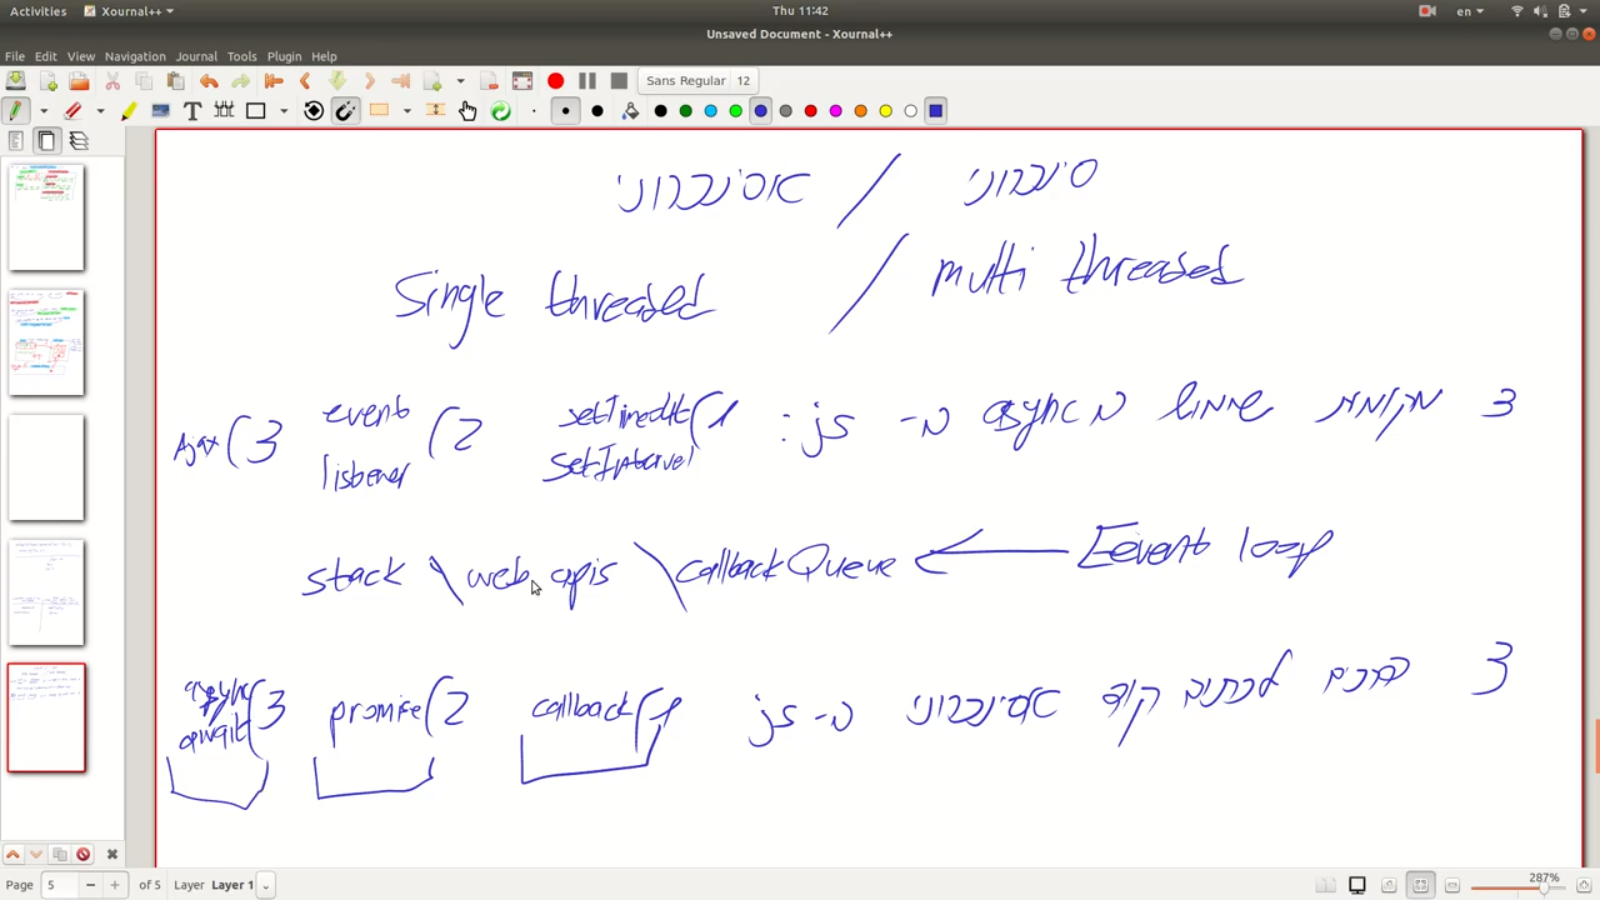 Activities Xournal++ Thu 11:42 en
Unsaved Document - Xournal++
File Edit View Navigation Journal Tools Plugin Help
Sans Regular 12
סינכרוני / אסינכרוני
Single threaded / multi threaded
3 מקומות ב async ב- js: 1) setTimeOut setInterval 2) event listener 3) Ajax
stack \ web apis \ callbackQueue ← Eevent loop
3 דרכים לכתוב קוד אסינכרוני ב- js 1) callback 2) promise 3) async await
Page 5 of 5 Layer Layer 1 287%